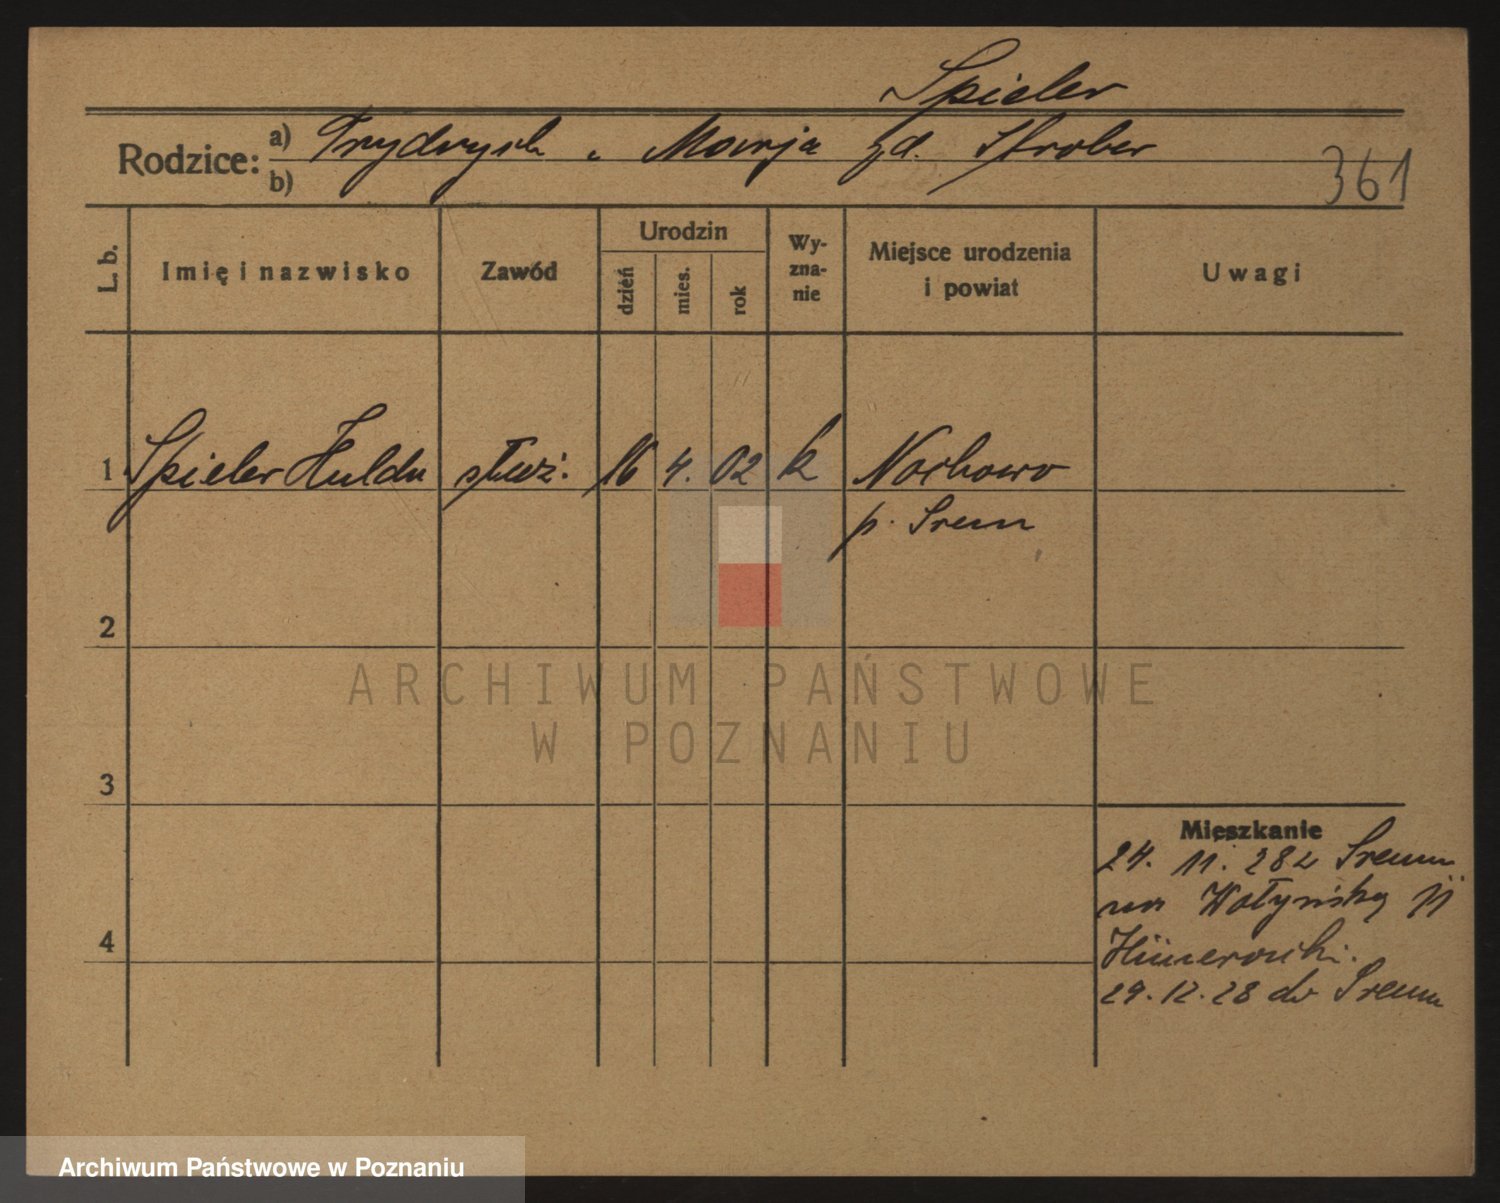 Spieler
Rodzice:
a) Frydrych i Marja zd. Strober
b)
361
L. b.
Imię i nazwisko
Zawód
Urodzin
dzień
mies.
rok
Wy-
zna-
nie
Miejsce urodzenia
i powiat
Uwagi
1 Spieler Hulda służ. 16 4. 02 k Nochowo
p. Śrem
2
3
4
Mieszkanie
24. 11. 28 z Śremu
na Wołyńską 11
29. 12. 28 do Śremu
ARCHIWUM PAŃSTWOWE
W POZNANIU
Archiwum Państwowe w Poznaniu